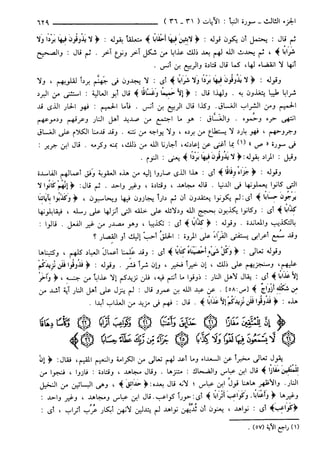 الجزء الثالث - سورة النبأ : الآيات ( ٣١ - ٣٦ )
٦٢٩
ثم قال : يحتمل أن يكون قوله : ﴿ لابثين فيها أحقابا ﴾ متعلقا بقوله : ﴿ لا يذوقون فيها بردا ولا
شرابا ﴾ ، ثم يحدث الله لهم بعد ذلك عذابا من شكل آخر ونوع آخر . ثم قال : والصحيح
أنها لا انقضاء لها، كما قال قتادة والربيع بن أنس .
وقوله : ﴿ لا يذوقون فيها بردا ولا شرابا ﴾ أي : لا يجدون في جهنم بردا لقلوبهم ، ولا
شرابا طيبا يتغذون به . ولهذا قال : ﴿ إلا حميما وغساقا ﴾ قال أبو العالية : استثنى من البرد
الحميم ومن الشراب الغساق. وكذا قال الربيع بن أنس . فأما الحميم : فهو الحار الذي قد
انتهى حره وحموه . والغساق : هو ما اجتمع من صديد أهل النار وعرقهم ودموعهم
وجروحهم ، فهو بارد لا يستطاع من برده ، ولا يواجه من نتنه . وقد قدمنا الكلام على الغساق
في سورة « ص » (١) بما أغنى عن إعادته، أجارنا الله من ذلك ، بمنه وكرمه . قال ابن جرير :
وقيل : المراد بقوله : ﴿ لا يذوقون فيها بردا ﴾ يعني : النوم .
وقوله : ﴿ جزاء وفاقا ﴾ أي : هذا الذي صاروا إليه من هذه العقوبة وفق أعمالهم الفاسدة
التي كانوا يعملونها في الدنيا . قاله مجاهد ، وقتادة ، وغير واحد . ثم قال : ﴿ إنهم كانوا لا
يرجون حسابا ﴾ أي : لم يكونوا يعتقدون أن ثم دارا يجازون فيها ويحاسبون ، ﴿ وكذبوا بآياتنا
كذابا ﴾ أي : وكانوا يكذبون بحجج الله ودلائله على خلقه التي أنزلها على رسله ، فيقابلونها
بالتكذيب والمعاندة . وقوله : ﴿ كذابا ﴾ أي : تكذيبا ، وهو مصدر من غير الفعل . قالوا :
وقد سمع أعرابي يستفتي الفراء على المروة : الحلق أحب إليك أو القصار ؟
وقوله تعالى : ﴿ وكل شيء أحصيناه كتابا ﴾ أي : وقد علمنا أعمال العباد كلهم ، وكتبناها
عليهم ، وسنجزيهم على ذلك ، إن خيرا فخير ، وإن شرا فشر . وقوله : ﴿ فذوقوا فلن نزيدكم
إلا عذابا ﴾ أي : يقال لأهل النار : ذوقوا ما أنتم فيه، فلن نزيدكم إلا عذابا من جنسه ، ﴿ وآخر
من شكله أزواج ﴾ [ص : ٥٨] . عن عبد الله بن عمرو قال : لم ينزل على أهل النار آية أشد من
هذه : ﴿ فذوقوا فلن نزيدكم إلا عذابا ﴾ . قال : فهم في مزيد من العذاب أبدا .
إن للمتقين مفازا حدائق وأعنابا وكواعب أترابا وكأسا دهاقا
لا يسمعون فيها لغوا ولا كذابا جزاء من ربك عطاء حسابا
يقول تعالى مخبرا عن السعداء وما أعد لهم تعالى من الكرامة والنعيم المقيم، فقال: ﴿ إن
للمتقين مفازا ﴾ قال ابن عباس والضحاك : متنزها . وقال مجاهد ، وقتادة : فازوا ، فنجوا من
النار. والأظهر هاهنا قول ابن عباس ؛ لأنه قال بعده : ﴿ حدائق ﴾ ، وهي البساتين من النخيل
وغيرها ﴿ وأعنابا . وكواعب أترابا ﴾ أي : حورا كواعب. قال ابن عباس ومجاهد ، وغير واحد :
﴿ كواعب ﴾ أي : نواهد ، يعنون أن ثديهن نواهد لم يتدلين لأنهن أبكار عرب أتراب ، أي :
(١) راجع الآية (٥٧) .